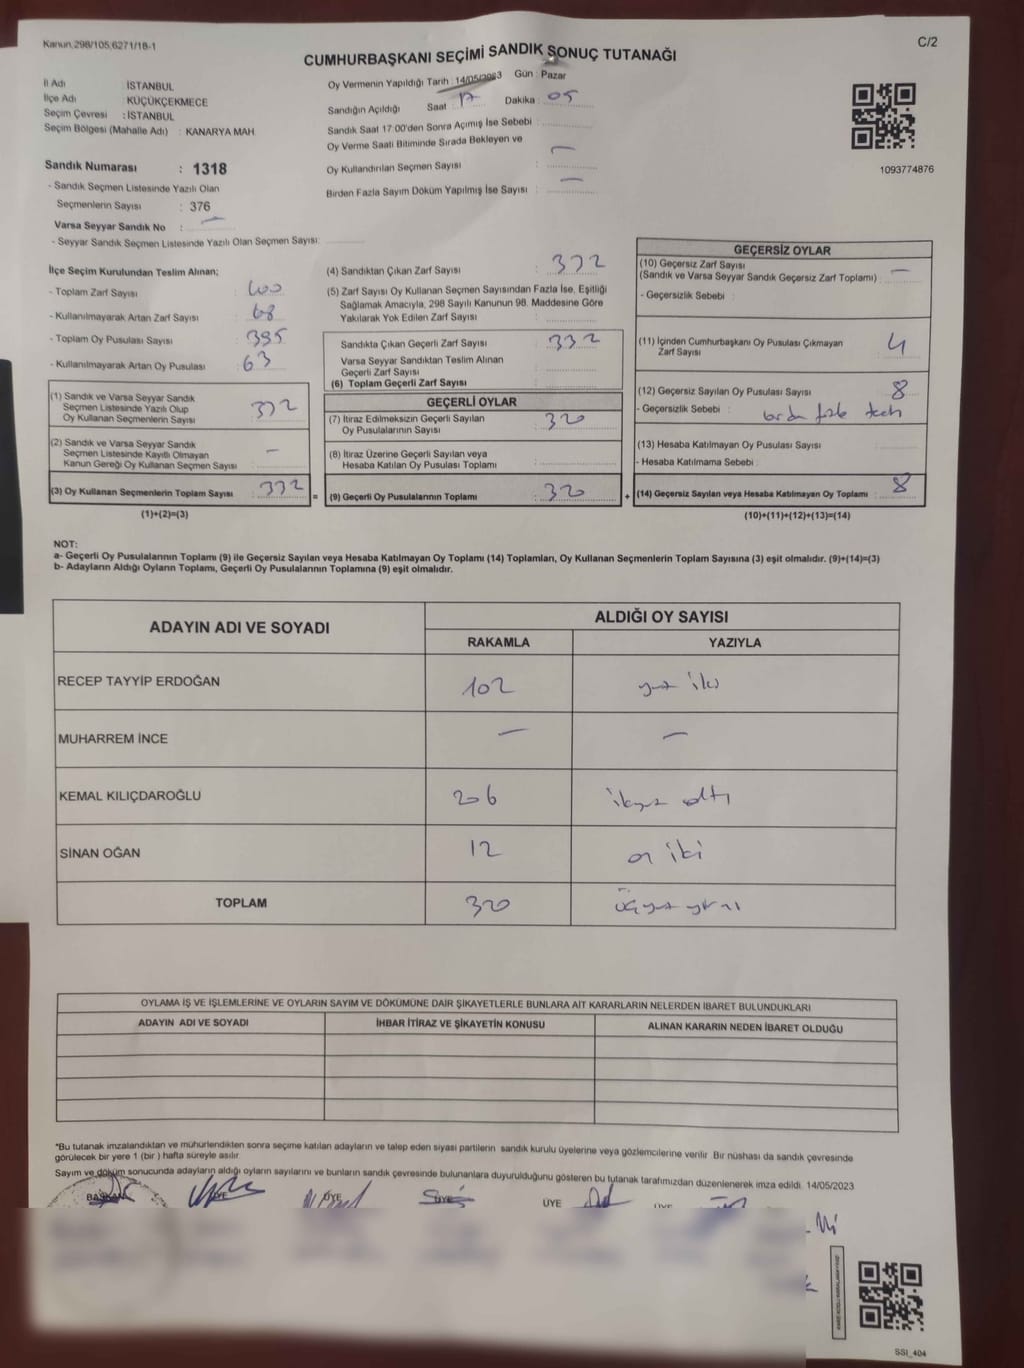 Kanun, 298/105,6271/18-1
C/2
CUMHURBAŞKANI SEÇİMİ SANDIK SONUÇ TUTANAĞI
İl Adı : İSTANBUL
İlçe Adı : KÜÇÜKÇEKMECE
Seçim Çevresi : İSTANBUL
Seçim Bölgesi (Mahalle Adı) : KANARYA MAH
Oy Vermenin Yapıldığı Tarih : 14/05/2023 Gün : Pazar
Sandığın Açıldığı Saat : 17 Dakika : 05
Sandık Saat 17:00'den Sonra Açımış İse Sebebi :
Oy Verme Saati Bitiminde Sırada Bekleyen ve
Oy Kullandırılan Seçmen Sayısı : —
Birden Fazla Sayım Döküm Yapılmış İse Sayısı : —
1093774876
Sandık Numarası : 1318
- Sandık Seçmen Listesinde Yazılı Olan
Seçmenlerin Sayısı : 376
Varsa Seyyar Sandık No : —
- Seyyar Sandık Seçmen Listesinde Yazılı Olan Seçmen Sayısı:
İlçe Seçim Kurulundan Teslim Alınan;
- Toplam Zarf Sayısı : 400
- Kullanılmayarak Artan Zarf Sayısı : 68
- Toplam Oy Pusulası Sayısı : 395
- Kullanılmayarak Artan Oy Pusulası : 63
(1) Sandık ve Varsa Seyyar Sandık
Seçmen Listesinde Yazılı Olup
Oy Kullanan Seçmenlerin Sayısı : 332
(2) Sandık ve Varsa Seyyar Sandık
Seçmen Listesinde Kayıtlı Olmayan
Kanun Gereği Oy Kullanan Seçmen Sayısı : —
(3) Oy Kullanan Seçmenlerin Toplam Sayısı : 332
(1)+(2)=(3)
(4) Sandıktan Çıkan Zarf Sayısı : 332
(5) Zarf Sayısı Oy Kullanan Seçmen Sayısından Fazla İse, Eşitliği
Sağlamak Amacıyla, 298 Sayılı Kanunun 98. Maddesine Göre
Yakılarak Yok Edilen Zarf Sayısı :
Sandıkta Çıkan Geçerli Zarf Sayısı : 332
Varsa Seyyar Sandıktan Teslim Alınan
Geçerli Zarf Sayısı :
(6) Toplam Geçerli Zarf Sayısı :
GEÇERLİ OYLAR
(7) İtiraz Edilmeksizin Geçerli Sayılan
Oy Pusulalarının Sayısı : 320
(8) İtiraz Üzerine Geçerli Sayılan veya
Hesaba Katılan Oy Pusulası Toplamı :
= (9) Geçerli Oy Pusulalarının Toplamı : 320 +
GEÇERSİZ OYLAR
(10) Geçersiz Zarf Sayısı
(Sandık ve Varsa Seyyar Sandık Geçersiz Zarf Toplamı) : —
- Geçersizlik Sebebi :
(11) İçinden Cumhurbaşkanı Oy Pusulası Çıkmayan
Zarf Sayısı : 4
(12) Geçersiz Sayılan Oy Pusulası Sayısı : 8
- Geçersizlik Sebebi :
(13) Hesaba Katılmayan Oy Pusulası Sayısı :
- Hesaba Katılmama Sebebi :
(14) Geçersiz Sayılan veya Hesaba Katılmayan Oy Toplamı : 8
(10)+(11)+(12)+(13)=(14)
NOT:
a- Geçerli Oy Pusulalarının Toplamı (9) ile Geçersiz Sayılan veya Hesaba Katılmayan Oy Toplamı (14) Toplamları, Oy Kullanan Seçmenlerin Toplam Sayısına (3) eşit olmalıdır. (9)+(14)=(3)
b- Adayların Aldığı Oyların Toplamı, Geçerli Oy Pusulalarının Toplamına (9) eşit olmalıdır.
ADAYIN ADI VE SOYADI
ALDIĞI OY SAYISI
RAKAMLA YAZIYLA
RECEP TAYYİP ERDOĞAN 102 yüz iki
MUHARREM İNCE — —
KEMAL KILIÇDAROĞLU 206 ikiyüz altı
SİNAN OĞAN 12 on iki
TOPLAM 320 üçyüz yirmi
OYLAMA İŞ VE İŞLEMLERİNE VE OYLARIN SAYIM VE DÖKÜMÜNE DAİR ŞİKAYETLERLE BUNLARA AİT KARARLARIN NELERDEN İBARET BULUNDUKLARI
ADAYIN ADI VE SOYADI İHBAR İTİRAZ VE ŞİKAYETİN KONUSU ALINAN KARARIN NEDEN İBARET OLDUĞU
*Bu tutanak imzalandıktan ve mühürlendikten sonra seçime katılan adayların ve talep eden siyasi partilerin sandık kurulu üyelerine veya gözlemcilerine verilir. Bir nüshası da sandık çevresinde
görülecek bir yere 1 (bir ) hafta süreyle asılır.
Sayım ve döküm sonucunda adayların aldığı oyların sayılarını ve bunların sandık çevresinde bulunanlara duyurulduğunu gösteren bu tutanak tarafımızdan düzenlenerek imza edildi. 14/05/2023
BAŞKAN ÜYE ÜYE ÜYE ÜYE ÜYE
SSI_404